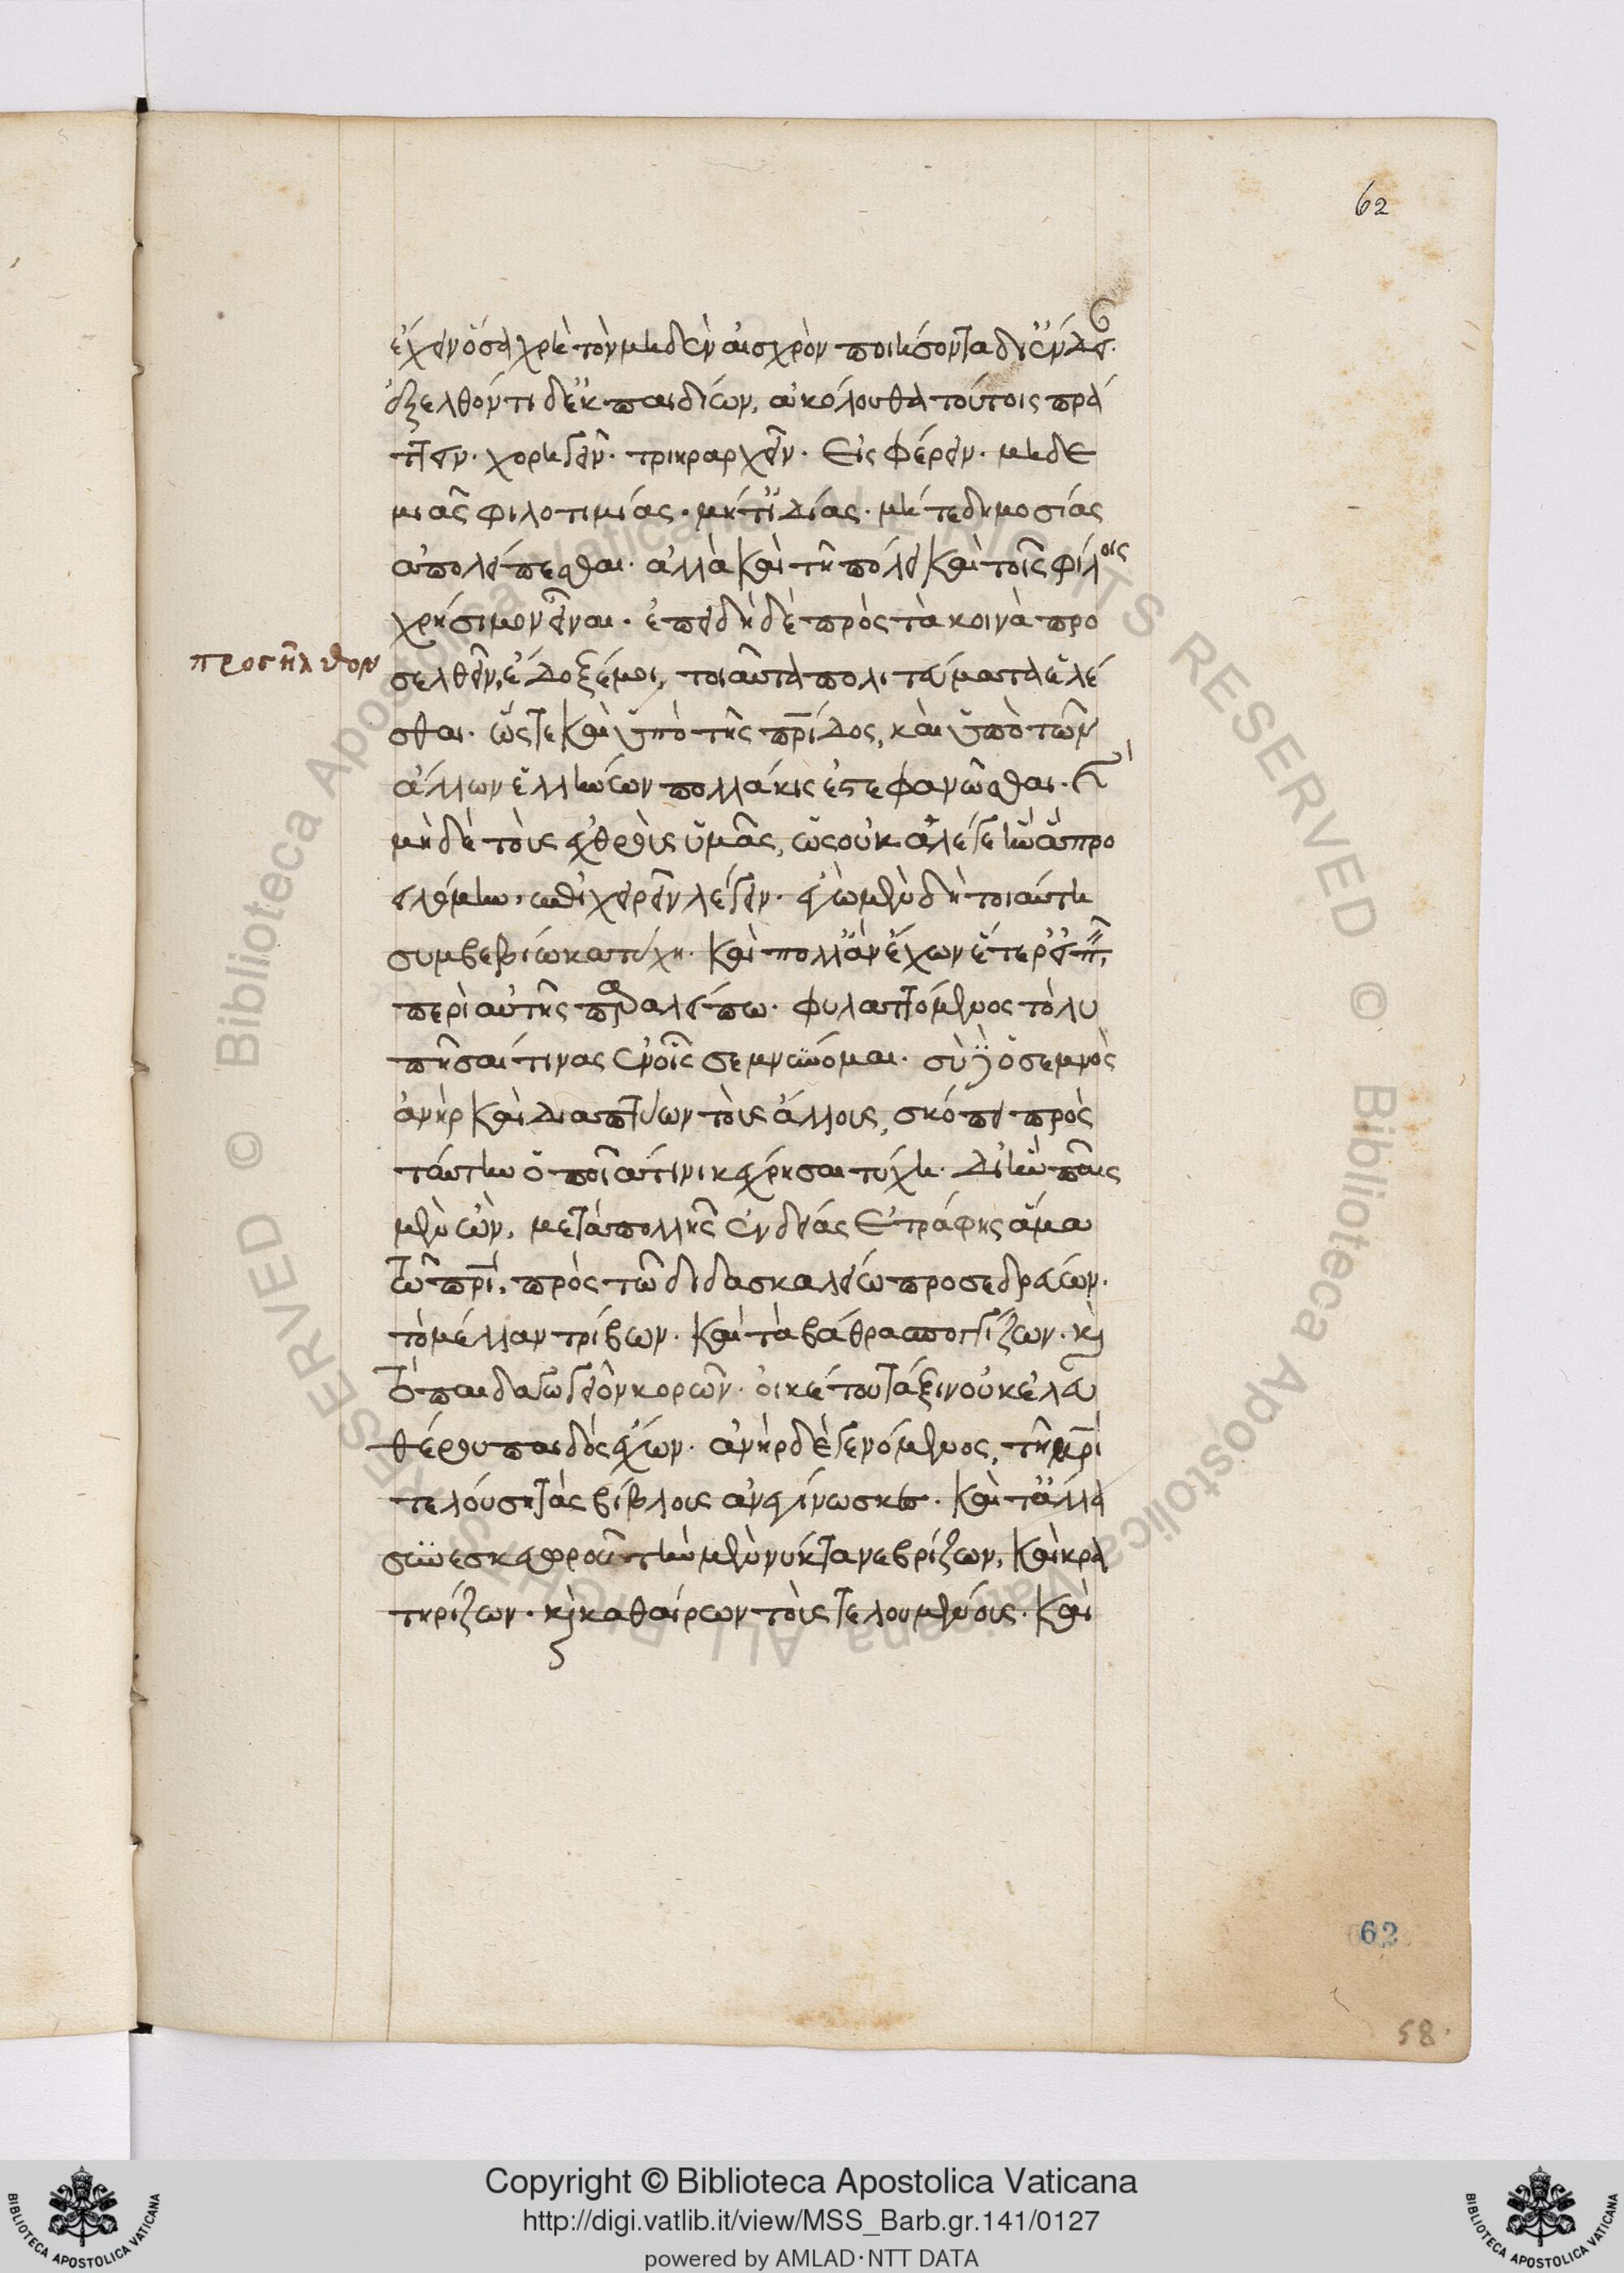 62
ἔχειν ὅσα χρὴ τὸν μηδὲν αἰσχρὸν ποιήσοντα δι' ἔνδει
ἐξελθόντι δ' ἐκ παιδίων, ἀκόλουθα τούτοις πρά
ττειν· χορηγεῖν· τριηραρχεῖν· εἰσφέρειν· μηδε
μιᾶς φιλοτιμίας· μήτ' ἰδίας· μήτε δημοσίας
ἀπολείπεσθαι· ἀλλὰ καὶ τῆ πόλει καὶ τοῖς φίλοις
χρήσιμον εἶναι· ἐπειδὴ δὲ πρὸς τὰ κοινὰ προ
προσῆλθον
σελθεῖν, ἔδοξέ μοι, τοιαῦτα πολιτεύματα ἑλέ
σθαι· ὥστε καὶ ὑπὸ τῆς πρίδος, καὶ ὑπὸ τῶν
ἄλλων ἑλλήνων πολλάκις ἐστεφανῶσθαι· καὶ
μηδὲ τοὺς ἐχθροὺς ὑμᾶς, ὡς οὐ καλά γε ἦν ἃ προ
ειλόμην, ἐπιχειρεῖν λέγειν· ἐγὼ μὲν δὴ τοιαύτη
συμβεβίωκα τύχη· καὶ πόλλ' ἂν ἔχων ἕτερ' εἰπεῖν,
περὶ αὐτῆς παραλείπω· φυλαττόμενος τὸ λυ
πῆσαί τινας ἐν οἷς σεμνύνομαι· σὺ δ' ὁ σεμνὸς
ἀνὴρ καὶ διαπτύων τοὺς ἄλλους, σκόπει πρὸς
ταύτην ὁποία τινὶ κέχρησαι τύχη· δι' ἣν παῖς
μὲν ὢν, μετὰ πολλῆς ἐνδείας ἐτράφης ἅμα
τῶ πρὶ, πρὸς τῶ διδασκαλείω προσεδρεύων·
τὸ μέλλαν τρίβων· καὶ τὰ βάθρα σπογγίζων· καὶ
τὸ παιδαγωγεῖον κορῶν· οἰκέτου τάξιν οὐκ ἐλευ
θέρου παιδὸς ἔχων· ἀνὴρ δὲ γενόμενος, τῆ μρὶ
τελούση τὰς βίβλους ἀνεγίνωσκες· καὶ τἄλλα
συνεσκευωροῦ τὴν μὲν νύκτα νεβρίζων, καὶ κρα
τηρίζων· καὶ καθαίρων τοὺς τελουμένους· καὶ
62
58
Copyright © Biblioteca Apostolica Vaticana
http://digi.vatlib.it/view/MSS_Barb.gr.141/0127
powered by AMLAD·NTT DATA